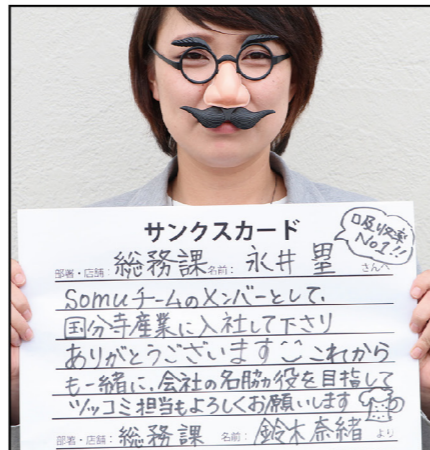 サンクスカード
吸収率
No1!!
部署・店舗: 総務課 名前: 永井 塁 さんへ
Somuチームのメンバーとして、
国分寺産業に入社して下さり
ありがとうございます これから
も一緒に、会社の名脇役を目指して
ツッコミ担当もよろしくお願いします
部署・店舗: 総務課 名前: 鈴木奈緒 より